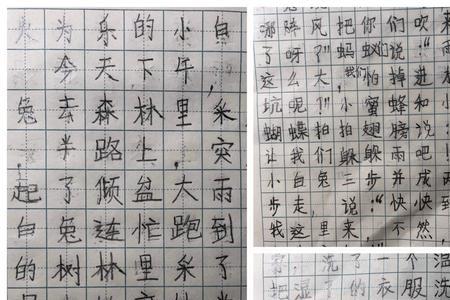 为乐的小白
今天下午,
兔去森林里采
,半路上,突
起了倾盆大雨
白兔连忙跑到
的树林里采了
哪阵风把你们吹来
了呀?”蚂蚁们说:“雨
这么大,我们怕掉进水
坑呢!”小蜜蜂和小
蝴蝶拍拍翅膀说:
让我们躲躲雨吧!
小白兔三步并成两
步走,说:“快快到
我这里来,不然,
洗了一个温
把湿了的衣服洗